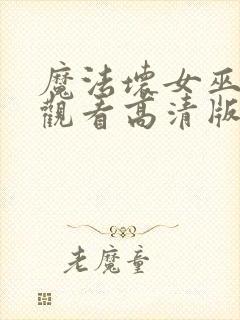 魔法壞女巫
觀看高清版
老魔童